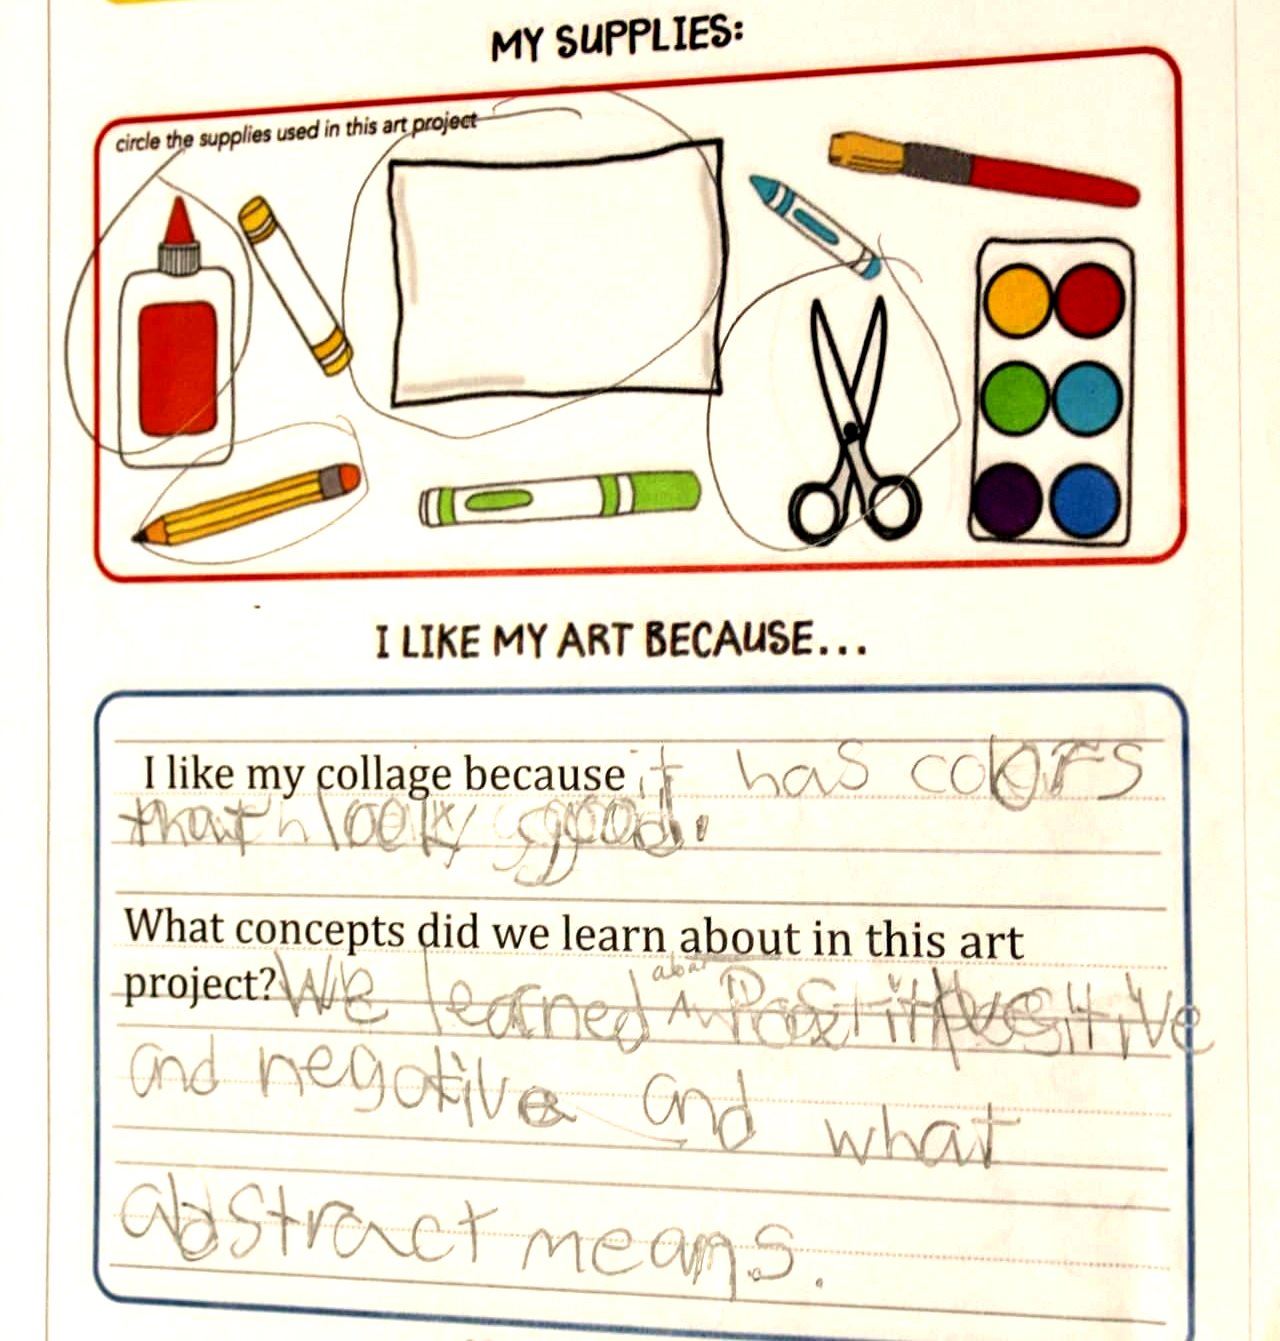 MY SUPPLIES:
circle the supplies used in this art project
I LIKE MY ART BECAUSE...
I like my collage because it has colors
that look good.
What concepts did we learn about in this art
project? We learned about Positive
and negative and what
abstract means.